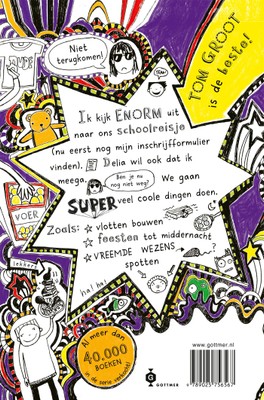 Niet
terugkomen!
YEAH!
TOM GROOT
is de beste!
Ik kijk ENORM uit
naar ons schoolreisje
(nu eerst nog mijn inschrijfformulier
vinden). Delia wil ook dat ik
meega. Ben je nu
nog niet weg? We gaan
SUPER veel coole dingen doen.
Zoals: ★ vlotten bouwen
★ feesten tot middernacht
★ VREEMDE WEZENS ?
spotten
VOER
lekker
ha! ha!
Al meer dan
40.000
BOEKEN
in de serie verkocht!
www.gottmer.nl
GOTTMER
9 789025 756567